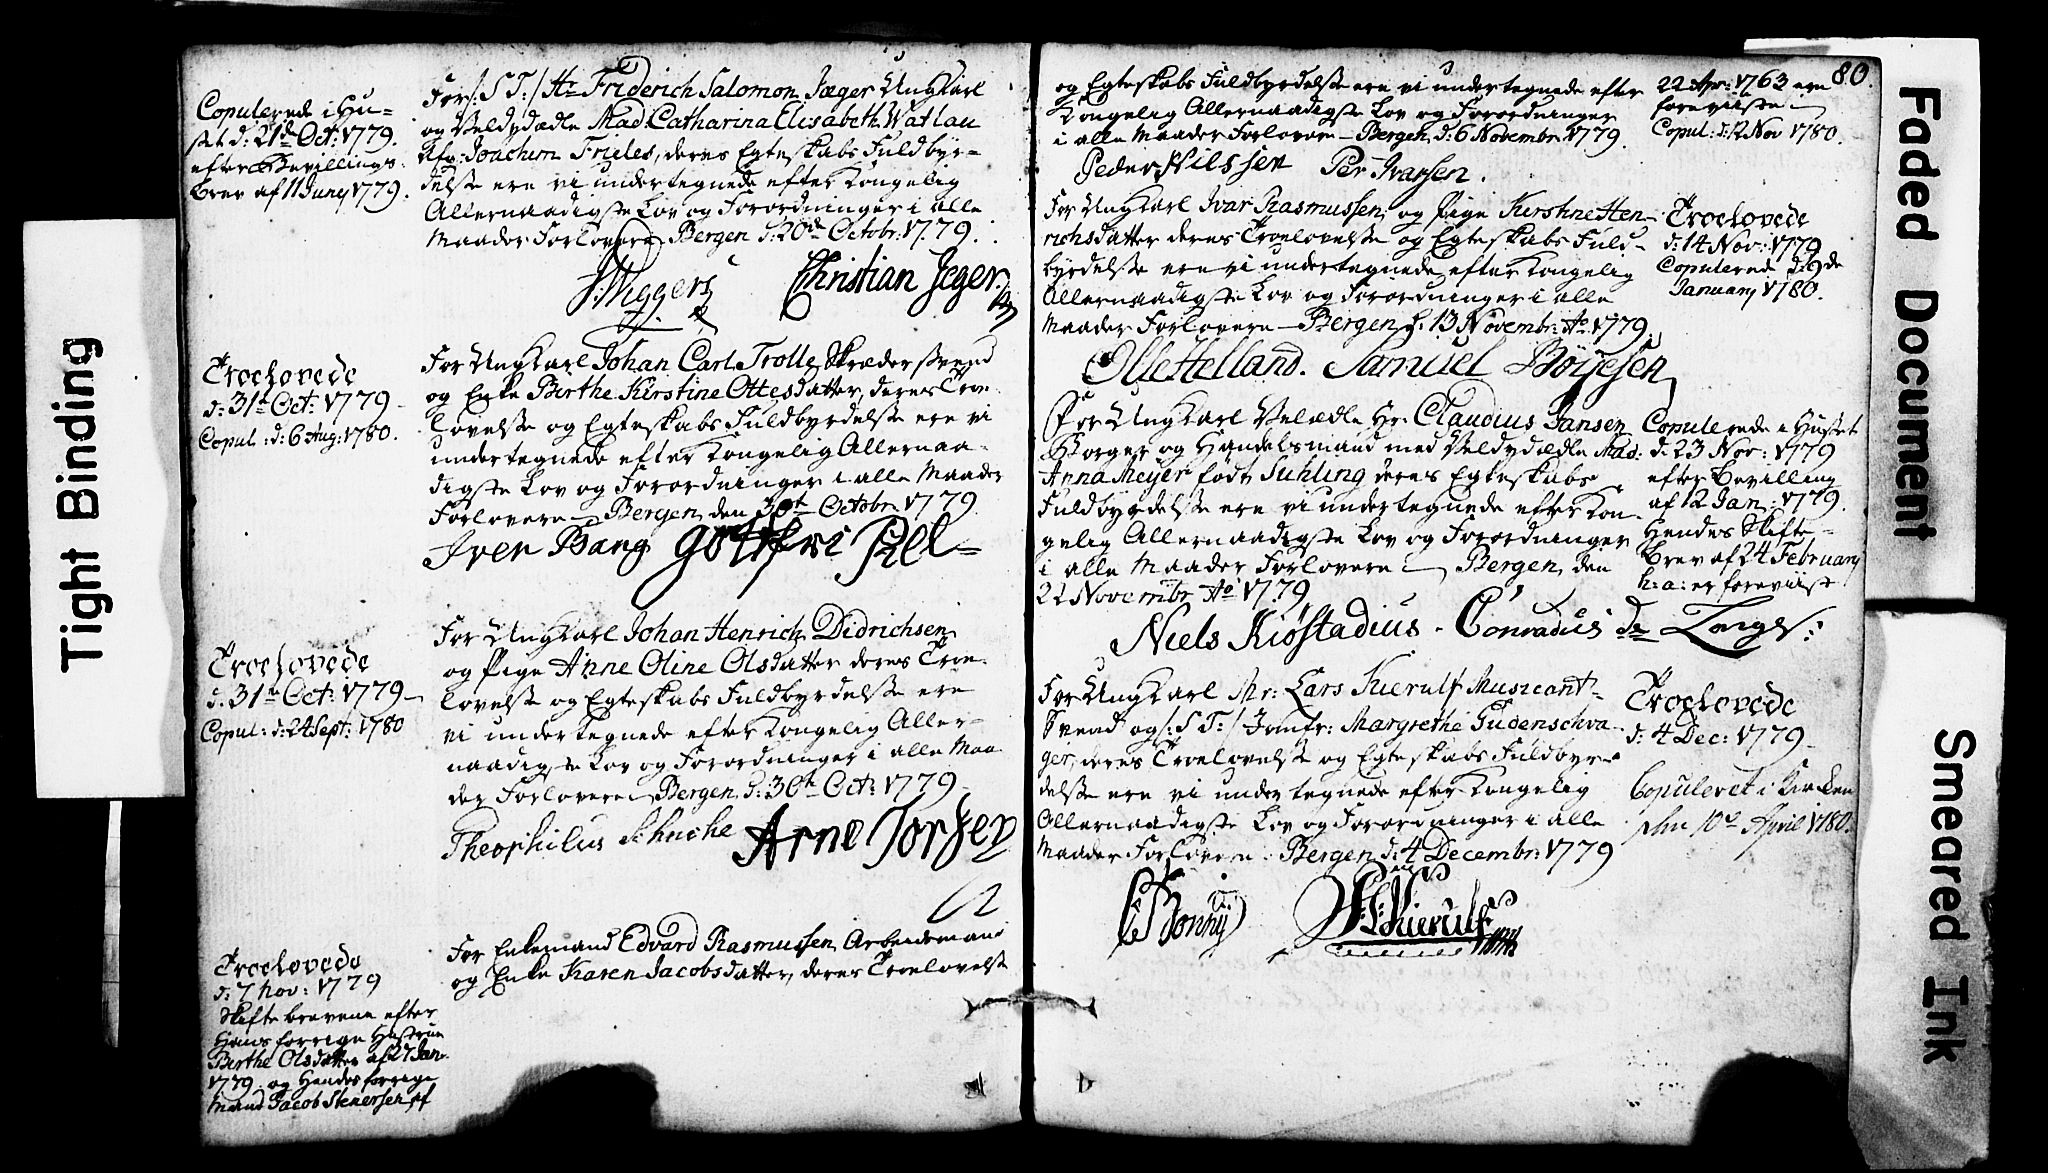 Copulerede i Hu-
set d: 21de Oct: 1779.
efter Bevillings-
brev af 11 Juny 1779.
For /: S: T: / Hr Friderich Salomon Jæger Ungkarl
og Veldydædle Mad: Catharina Elisabeth Watlau
Afg: Joachim Frieles, deres Egteskabs Fuldbyr-
delse ere vi undertegnede efter Kongelig
Allernaadigste Lov og Forordninger i alle
Maader Forlovere Bergen d: 20de Octobr: 1779.
Wiggers Christian Jeger.
Troelovede
d: 31te Oct: 1779
Copul: d: 6 Aug: 1780.
For Ungkarl Johan Carl Trolle, Skrædersvend
og Enke Birthe Kirstine Ottesdatter, deres Troe-
lovelse og Egteskabs Fuldbyrdelse ere vi
undertegnede efter Kongelig Allernaa-
digste Lov og Forordninger i alle Maader
Forlovere Bergen den 30te Octobr: 1779.
Iver Bang
Troelovede
d: 31te Oct: 1779
Copul: d: 24 Sept: 1780
For Ungkarl Johan Henrich Didrichsen
og Pige Anne Oline Olsdatter deres Troe-
lovelse og Egteskabs Fuldbyrdelse ere
vi undertegnede efter Kongelig Aller-
naadigste Lov og Forordninger i alle Maa-
der Forlovere Bergen d: 30te Oct: 1779
Theophilus Arne
Troelovede
d: 7 Nov: 1779
Skiftebrevene efter
Hans forrige Hustrue
Berthe Olsdatter af 27 Jan:
1779. og Hendes forrige
Mand Jacob Stenersen af
For Enkemand Edvard Rasmussen Arbeidsmand
og Enke Karen Jacobsdatter, deres Troelovelse
80.
og Egteskabs Fuldbyrdelse ere vi undertegnede efter
Kongelig Allernaadigste Lov og Forordninger
i alle Maader Forlovere Bergen d: 6 Novembr: 1779.
Peder Nilssen Per Ivarsen.
22 Apr: 1763 ere
foreviiste
Copul: d: 12 Nov 1780.
For Ungkarl Ivar Rasmussen og Pige Kirstine Hen-
richsdatter deres Troelovelse og Egteskabs Fuld-
byrdelse ere vi undertegnede efter Kongelig
Allernaadigste Lov og Forordninger i alle
Maader Forlovere Bergen d: 13 Novembr: Ao 1779.
Olle Helland. Samuel Børjesen
Troelovede
d: 14 Nov: 1779
Copulerede d: 9de
January 1780.
For Ungkarl Velædle Hr. Claudius Jansen
Borger og Handelsmand med Veldydædle Mad:
Anna Meyer født Suhling deres Egteskabs
Fuldbyrdelse ere vi undertegnede efter Kon-
gelig Allernaadigste Lov og Forordninger
i alle Maader Forlovere Bergen den
22 Novembr: Ao 1779
Niels Kiøstadius. Conradus de Lange:
Copulerede i Huset
d: 23 Nov: 1779
efter Bevilling
af 12 Jan: 1779.
Hendes Skifte-
brev af 24 February
h: a: er foreviist
For Ungkarl Mr: Lars Kierulf Musicant-
Svend og /: S: T: / Jomfr: Margrethe Gudenschva-
ger, deres Troelovelse og Egteskabs Fuldbyr-
delse ere vi undertegnede efter Kongelig
Allernaadigste Lov og Forordninger i alle
Maader Forlovere Bergen d: 4 Decembr: 1779
Kierulf
Troelovede
d: 4 Dec: 1779
Copuleret i Kirken
den 10de April 1780.
Tight Binding
Faded Document
Smeared Ink